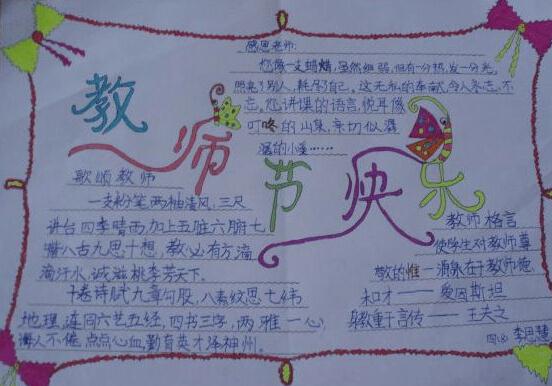 教师节快乐
感恩老师:
您像一支蜡烛,虽然细弱,但有一分热,发一分光,
照亮了别人,耗尽了自己。这无私的奉献,令人永志不
忘。您讲课的语言,悦耳像
叮咚的山泉,亲切似潺
潺的小溪……
歌颂教师
一支粉笔两袖清风,三尺
讲台四季晴雨,加上五脏六腑七
嘴八舌九思十想,教必有方,滴
滴汗水,诚滋桃李芳天下。
十卷诗赋九章勾股,八索文思七纬
地理,连同六艺五经,四书三字,两雅一心,
诲人不倦,点点心血,勤育英才泽神州。
教师格言
使学生对教师尊
敬的惟一源泉在于教师德
和才——爱因斯坦
躬教重于言传——王夫之
李思慧